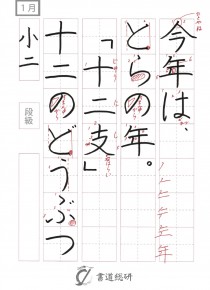 1月
今年は、
とらの年。
「十二支」
十二のどうぶつ
段級
小二
書道総研